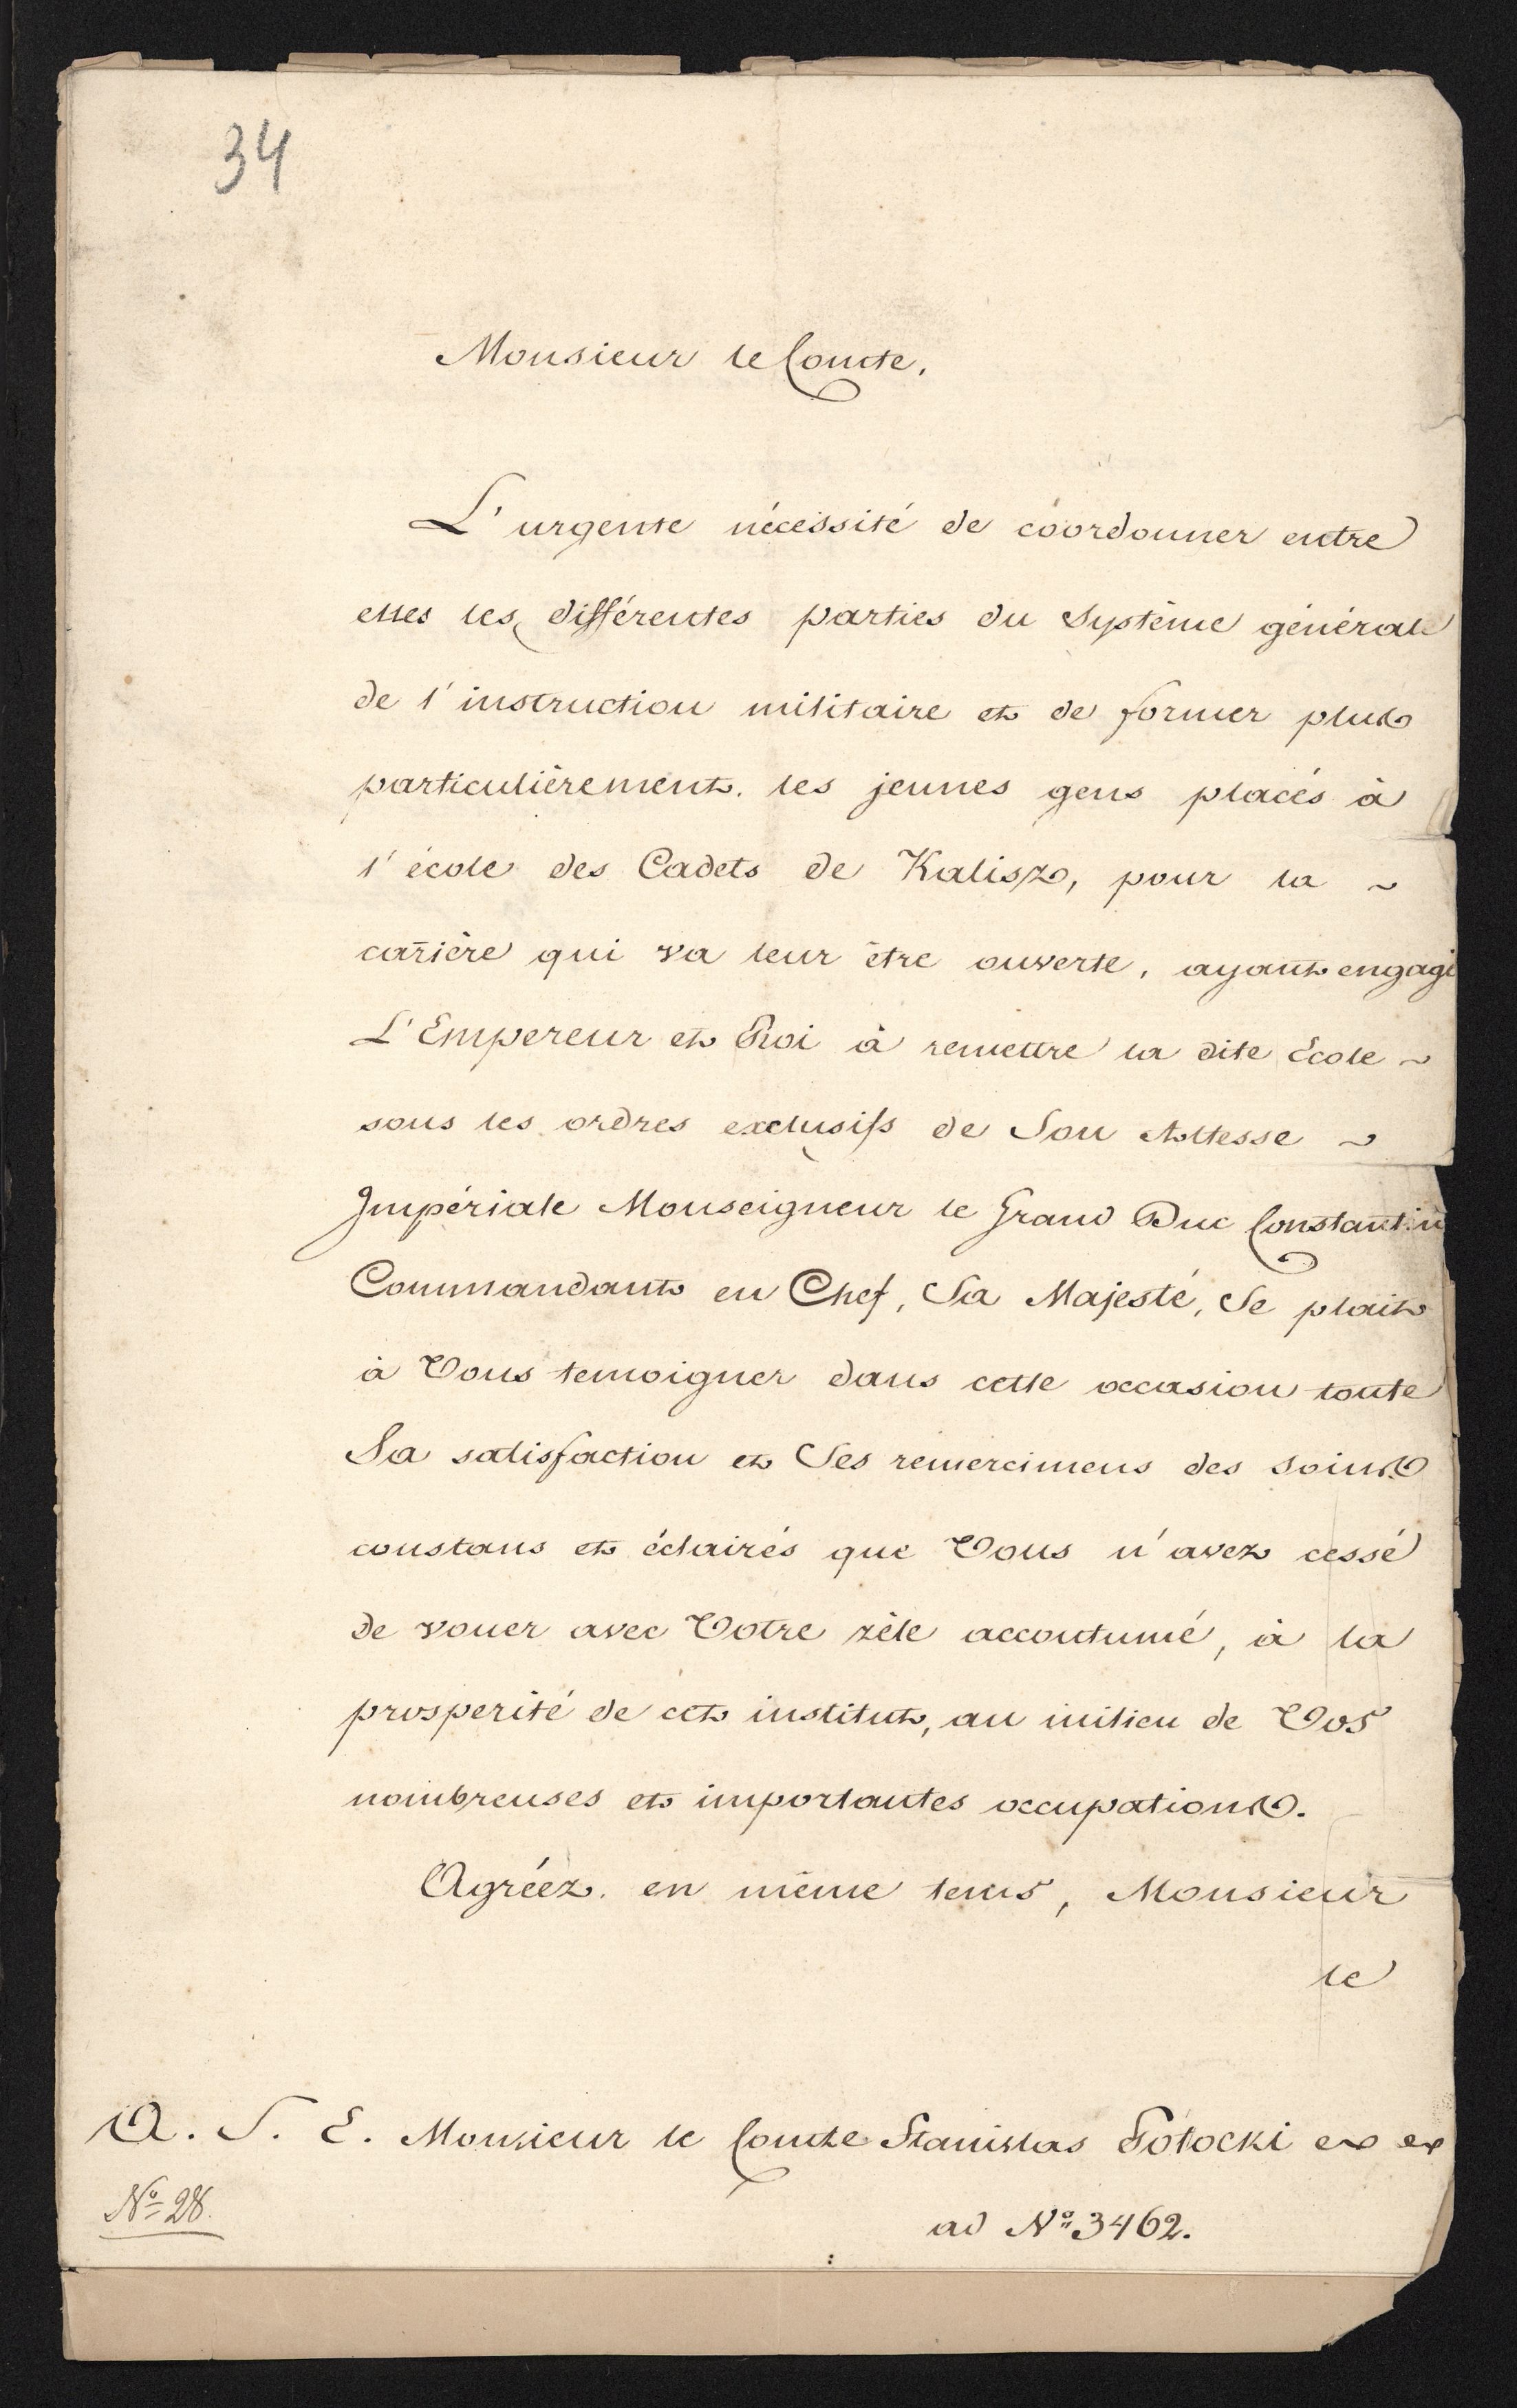 34
Monsieur le Comte,
L'urgente nécessité de coordonner entre
elles les différentes parties du Système générale
de l'instruction militaire et de former plus
particulièrement. les jeunes gens placés à
l'école des Cadets de Kalisz, pour la ~
carière qui va leur être ouverte, ayant engagé
L'Empereur et Roi à remettre la dite Ecole ~
sous les ordres exclusifs de Son Altesse ~
Impériale Monseigneur le Grand Duc Constantin
Commandant en Chef, Sa Majesté, Se plait
à Vous temoigner dans cette occasion toute
Sa satisfaction et Ses remercimens des soins
constans et éclairés que Vous n'avez cessé
de vouer avec Votre zèle accoutumé, à la
prosperité de cet institut, au milieu de Vos
nombreuses et importantes occupations.
Agréez. en même tems, Monsieur
le
A. S. E. Monsieur le Comte Stanislas Potocki
No 28.
ad No 3462.